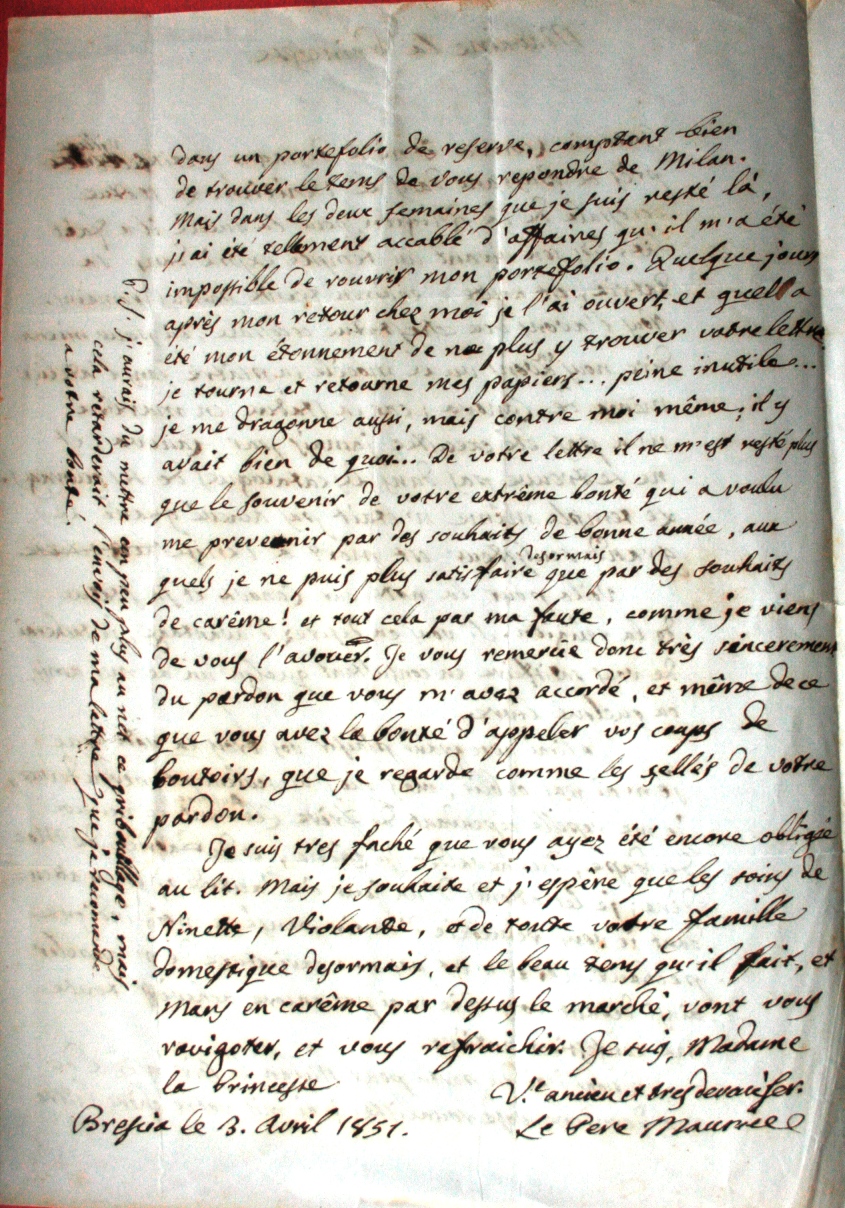 dans un portefolio de reserve, comptant bien
de trouver le tems de vous repondre de Milan.
Mais dans les deux semaines que je suis resté là,
j'ai été tellement accablé d'affaires qu'il m'a été
impossible de rouvrir mon portefolio. Quelque jours
après mon retour chez moi je l'ai ouvert, et quell a
été mon étonnement de ne plus y trouver votre lettre
je tourne et retourne mes papiers... peine inutile...
je me dragonne aussi, mais contre moi même; il y
avait bien de quoi... De votre lettre il ne m'est resté plus
que le souvenir de votre extrême bonté qui a voulu
me prevenir par des souhaits de bonne année, aux
desormais
quels je ne puis plus satisfaire que par des souhaits
de carême! et tout cela par ma faute, comme je viens
de vous l'avouer. Je vous remercie donc très sincerement
du pardon que vous m'avez accordé, et même de ce
que vous avez la bonté d'appeler vos coups de
boutoirs, que je regarde comme les sellés de votre
pardon.
Je suis tres faché que vous ayez été encore obligée
au lit. Mais je souhaite et j'espêre que les soins de
Ninette, Violante, et de toute votre famille
domestique desormais, et le beau tems qu'il fait, et
Mars en carême par dessus le marché, vont vous
ravigoter, et vous refraichir. Je suis, Madame
la Princesse
V.e ancien et tres devoué ser.
Brescia le 3. Avril 1851.
Le Pere Maurice
P.S. j'aurais du mettre un peu plus au net ce gribouillage, mais
cela retarderait l'envoi de ma lettre que je recomende
a votre bonté!